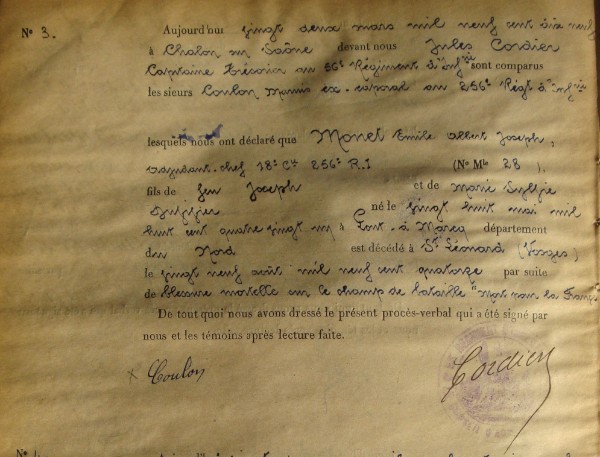 N° 3.
Aujourd'hui vingt deux mars mil neuf cent dix neuf
à Chalon sur Saône devant nous Jules Cordier
Capitaine Trésorier au 56e Régiment d'Inf rie sont comparus
les sieurs Coulon ex-caporal au 256e Régt d'Inf rie
lesquels nous ont déclaré que Monet Emile Albert Joseph,
adjudant-chef 18e Cie 256e R.I (N° Mle 28).
fils de feu Joseph et de Marie
né le vingt huit mai mil
huit cent quatre vingt un à Pont-à-Marcq département
du Nord est décédé à St Léonard (Vosges)
le vingt neuf août mil neuf cent quatorze par suite
de blessure mortelle sur le champ de bataille "Mort pour la France"
De tout quoi nous avons dressé le présent procès-verbal qui a été signé par
nous et les témoins après lecture faite.
x Coulon
Cordier